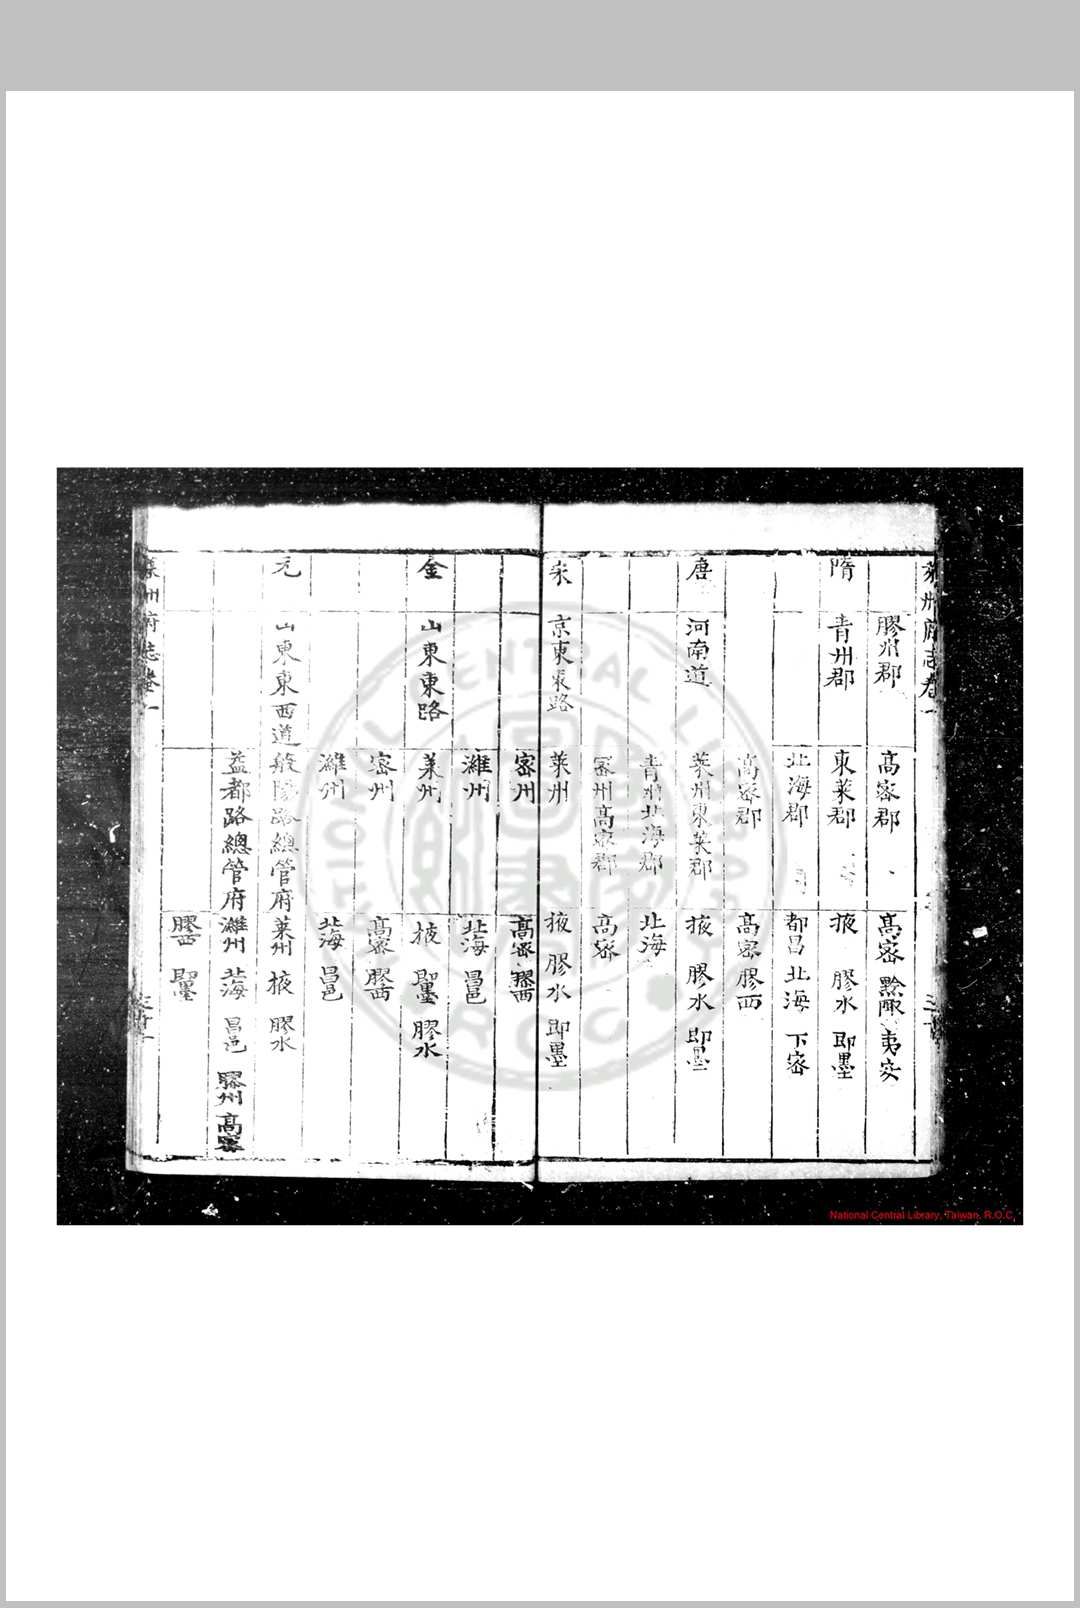 萊州府志卷一
膠州郡 高密郡 高密 黔陬 夷安
隋 青州郡 東萊郡 掖 膠水 即墨
北海郡 都昌 北海 下密
高密郡 高密 膠西
唐 河南道 萊州東萊郡 掖 膠水 即墨
青州北海郡 北海
密州高密郡 高密
宋 京東東路 萊州 掖 膠水 即墨
密州 高密 膠西
濰州 北海 昌邑
金 山東東路 萊州 掖 即墨 膠水
密州 高密 膠西
濰州 北海 昌邑
元 山東東西道 般陽路總管府 萊州 掖 膠水
益都路總管府 濰州 北海 昌邑 膠州 高密
膠西 即墨
萊州府志卷一
NATIONAL CENTRAL LIBRARY
R.O.C.
National Central Library, Taiwan, R.O.C.